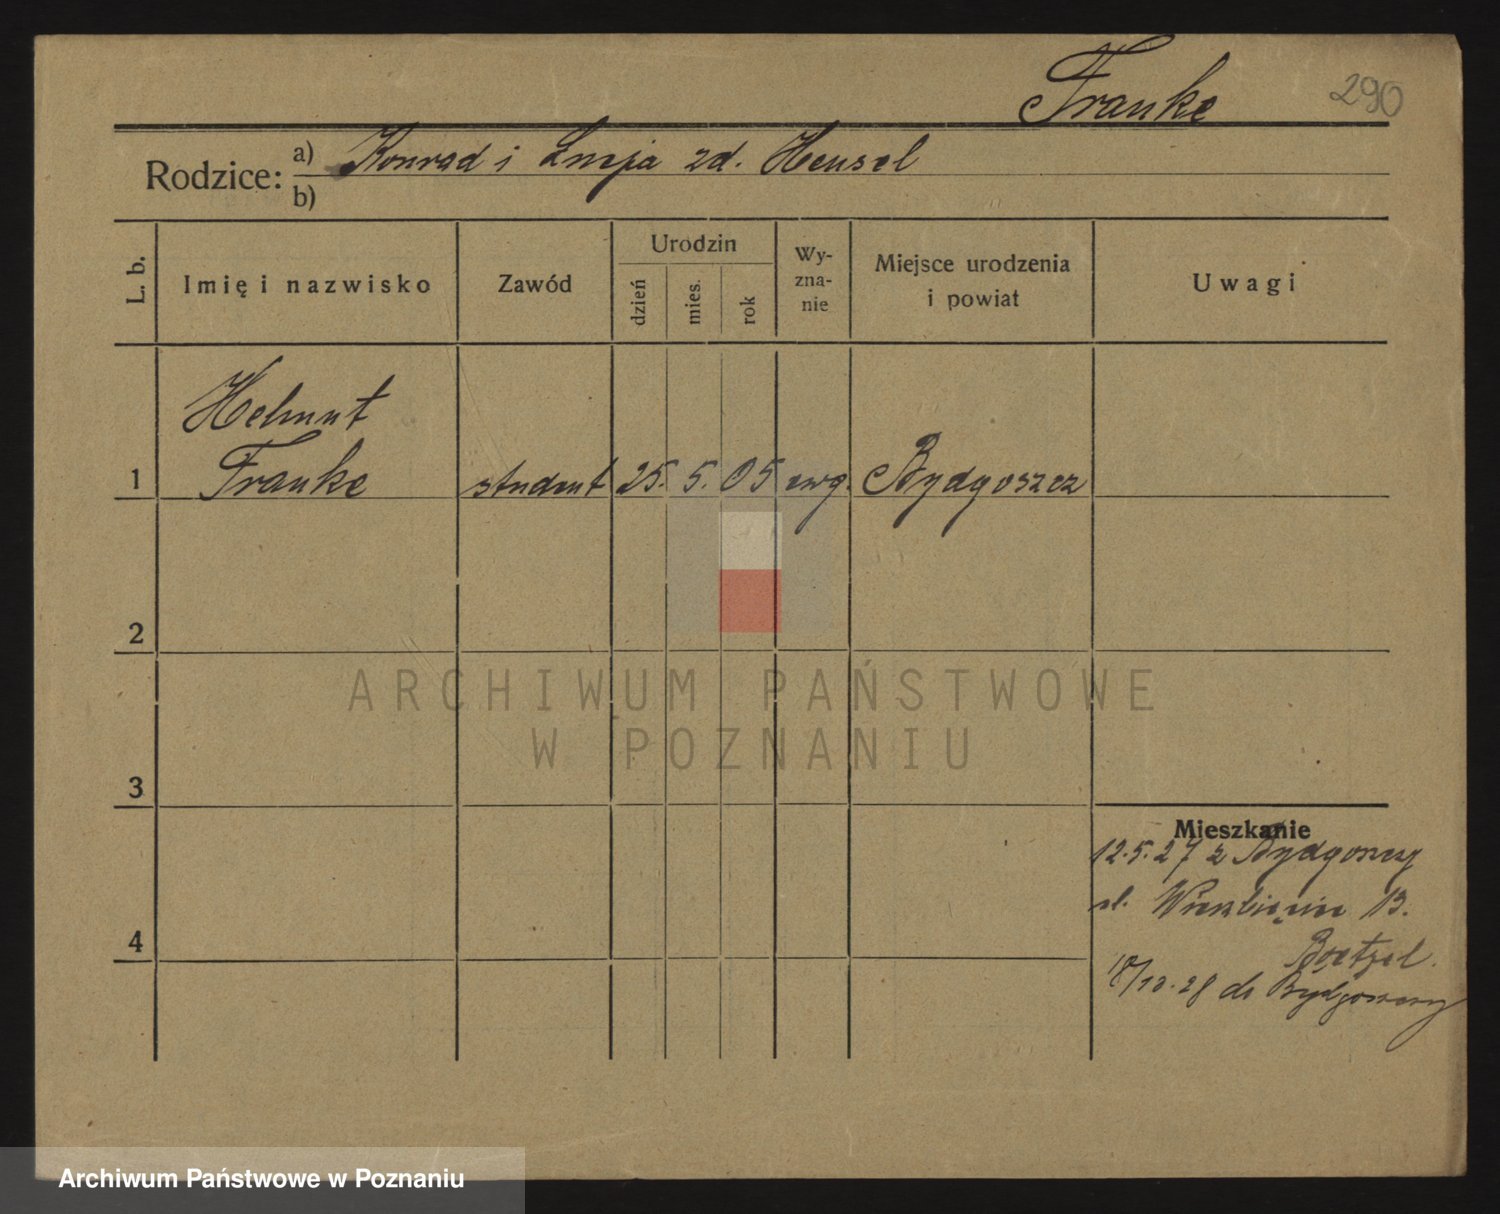 Franke
290
Rodzice:
a) Konrad i Luzja zd. Hensel
b)
L. b.
Imię i nazwisko
Zawód
Urodzin
dzień
mies.
rok
Wy-
zna-
nie
Miejsce urodzenia
i powiat
Uwagi
Helmut
1 Franke student 25. 5. 05 ewg. Bydgoszcz
2
ARCHIWUM PAŃSTWOWE
W POZNANIU
3
Mieszkanie
12.5.27 z Bydgoszczy
ul. Wierzbięcice 13.
4
Boetzel.
18/10.28 do Bydgoszczy
Archiwum Państwowe w Poznaniu